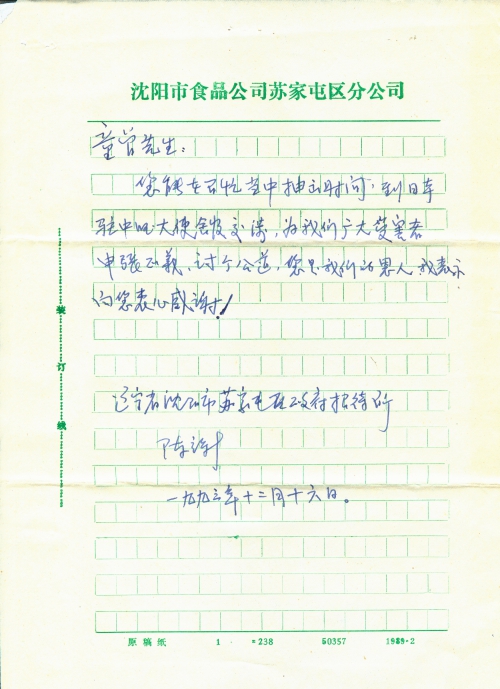 沈阳市食品公司苏家屯区分公司
童曾先生：
您能在百忙当中抽出时间，到日本
驻中国大使馆交涉，为我们广大受害者
申张正义，讨个公道，您是我们的恩人，我表示
向您衷心感谢！
辽宁省沈阳市苏家屯区政府招待所
陈
一九九三年十二月十六日。
装
订
线
原稿纸 1 =238 50357 1989·2